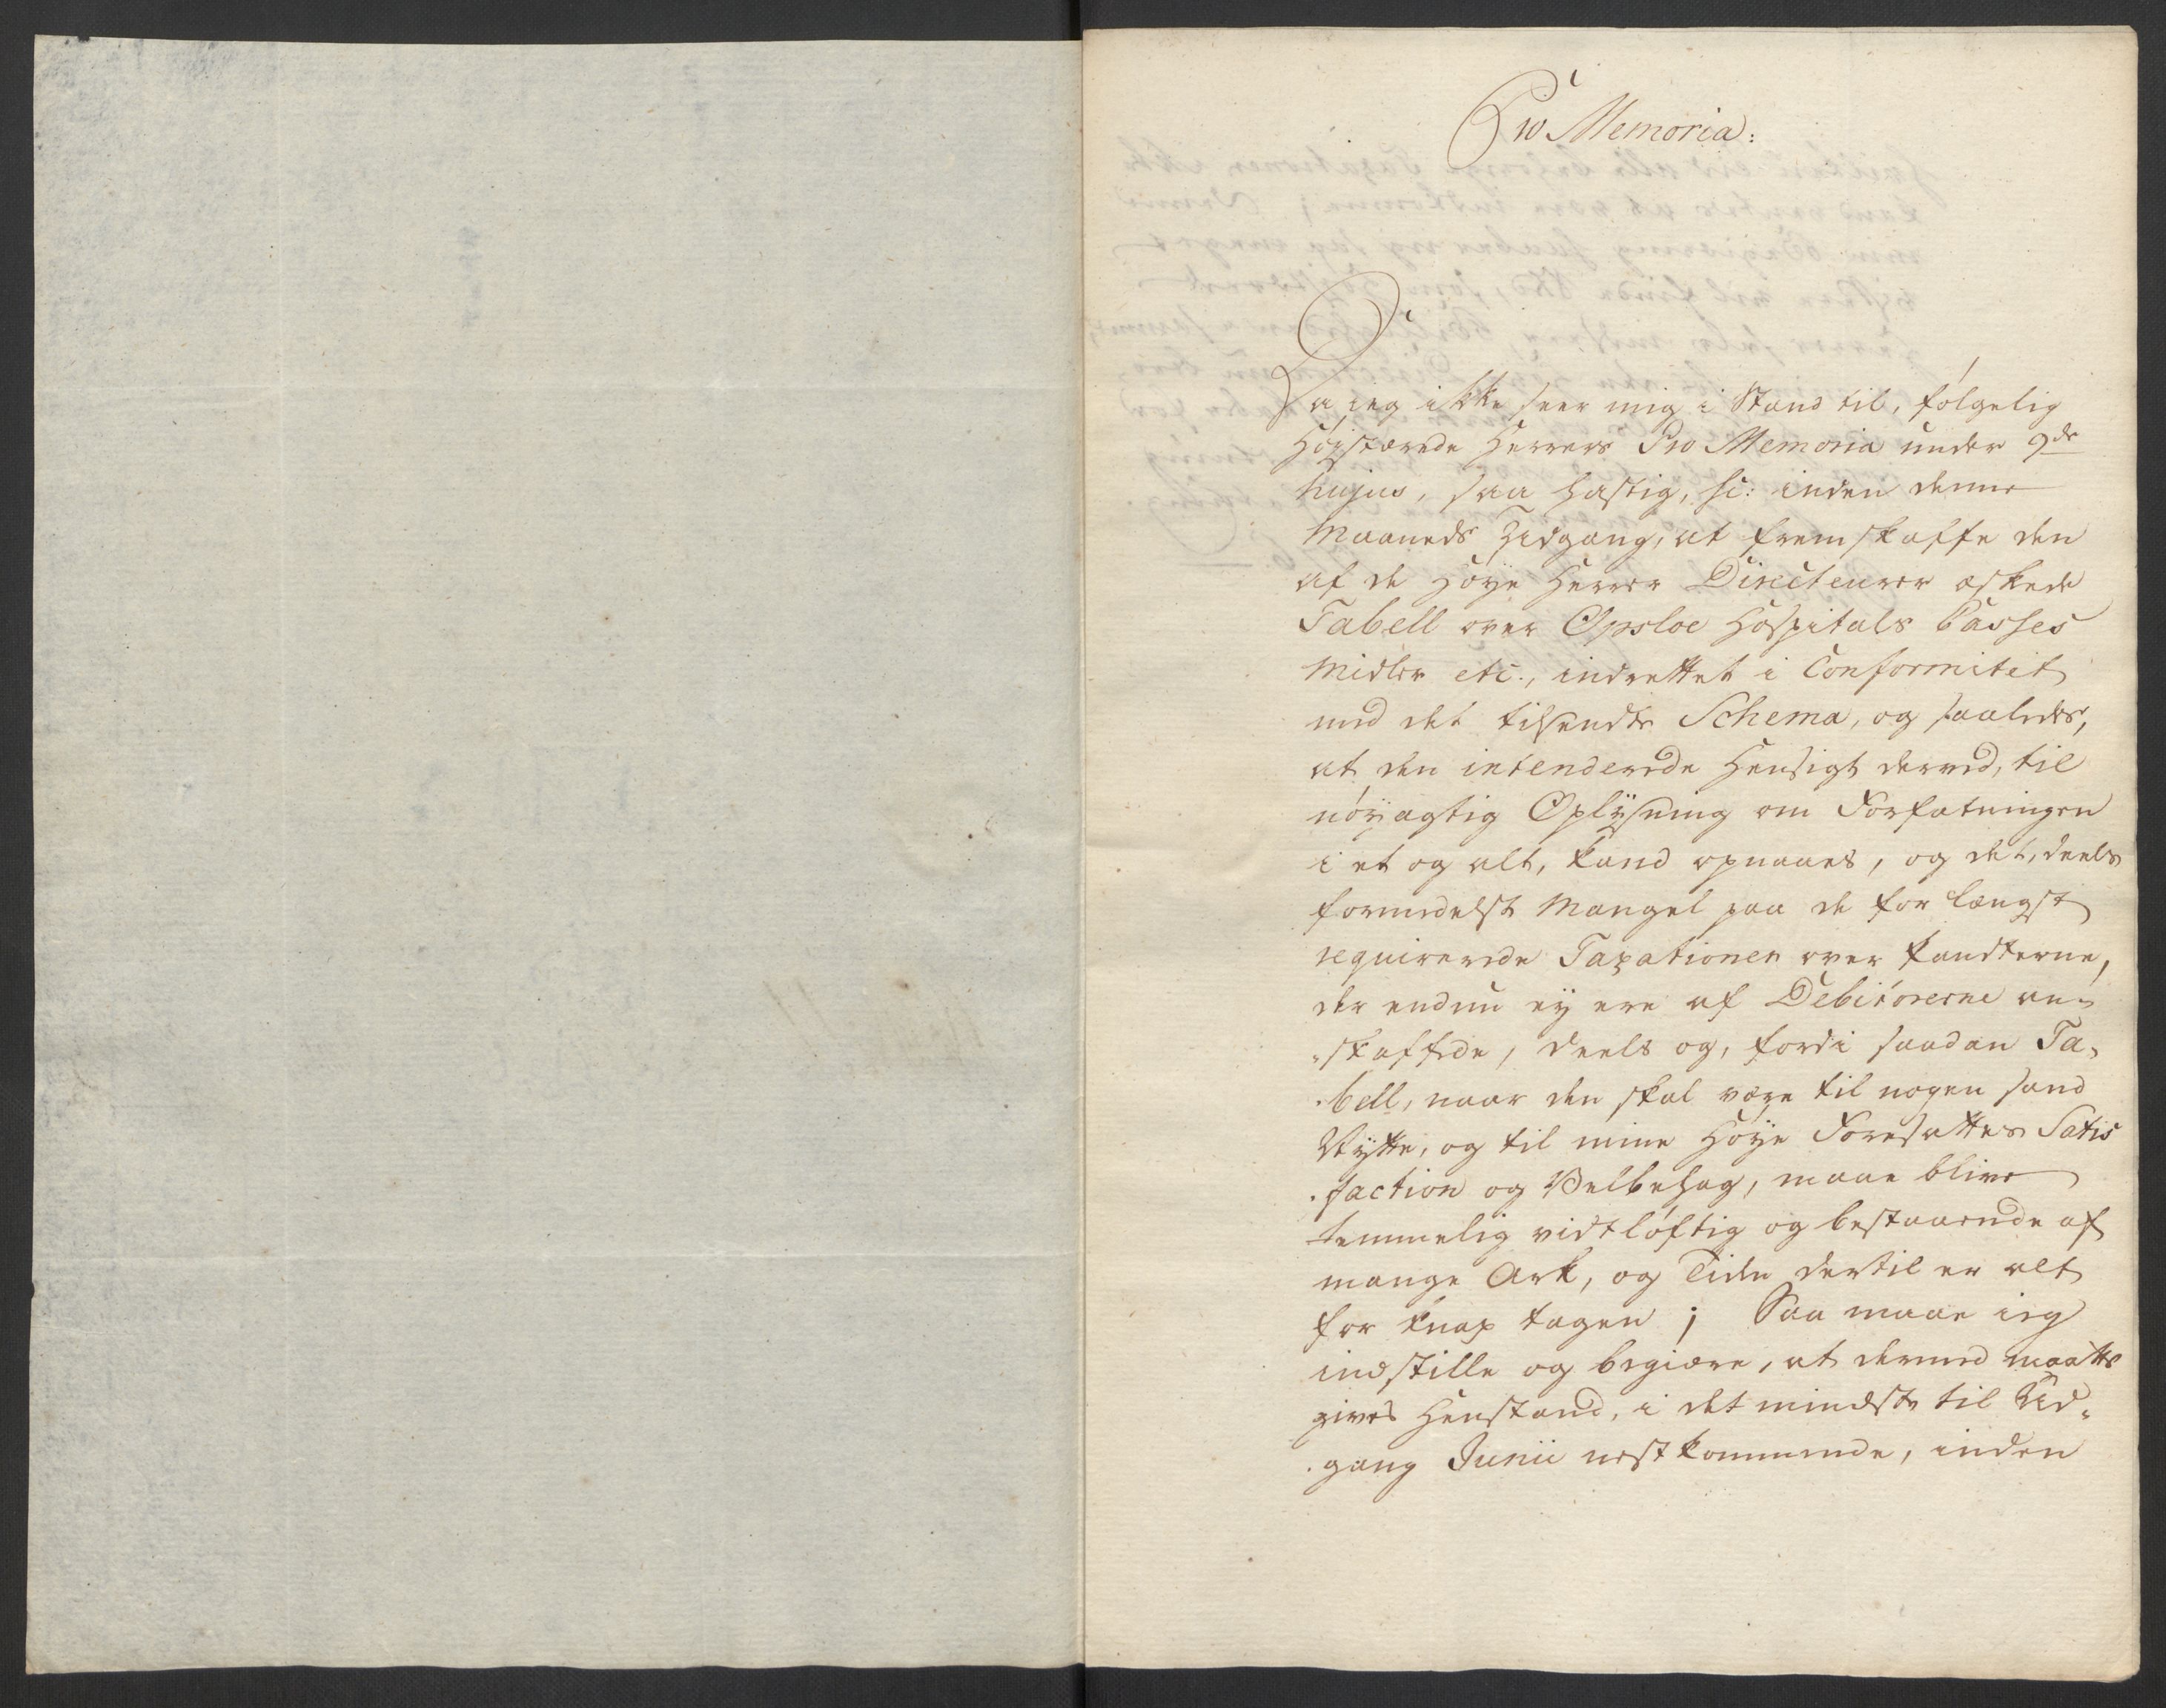 Pro Memoria:
Da jeg ikke seer mig i Stand til, følgelig
Høystærede Herrers Pro Memoria under 9de
hujus, saa hastig, sc: inden denne
Maaneds Udgang, at fremskaffe den
af de Høye Herrer Directeurer æskede
Tabell over Opsloe Hospitals Casses
Midler etc., indrettet i Conformitet
med det tilsendte Schema, og saaledes,
at den intenderede Hensigt derved, til
nøyagtig Oplysning om Forfatningen
i et og alt, kand opnaaes, og det, deels
formedelst Mangel paa de for længst
requirerede Taxationer over Pandterne,
der endnu ey ere af Debitorerne an-
-skaffede, deels og, fordi saadan Ta-
-bell, naar den skal være til nogen sand
Nytte, og til mine Høye Foresattes Satis
-faction og Velbehag, maae blive
temmelig vidtløftig og bestaaende af
mange Ark, og Tiden dertil er alt
for knap tagen; Saa maae jeg
indstille og begiære, at dermed maatte
gives Henstand, i det mindste til Ud-
-gang Junii nestkommende, inden